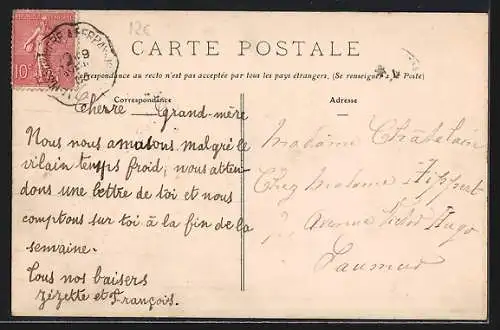 12c
CARTE POSTALE
Correspondance au recto n'est pas acceptée par tous les pays étrangers. (Se renseigner à la Poste)
Correspondance
Adresse
10
Chère Grand-mère
Nous nous amusons malgré le
vilain temps froid; nous atten-
dons une lettre de toi et nous
comptons sur toi à la fin de la
semaine.
Tous nos baisers
Zézette et François.
Madame Châtelain
Chez Madame Hippert
Avenue Victor Hugo
Saumur